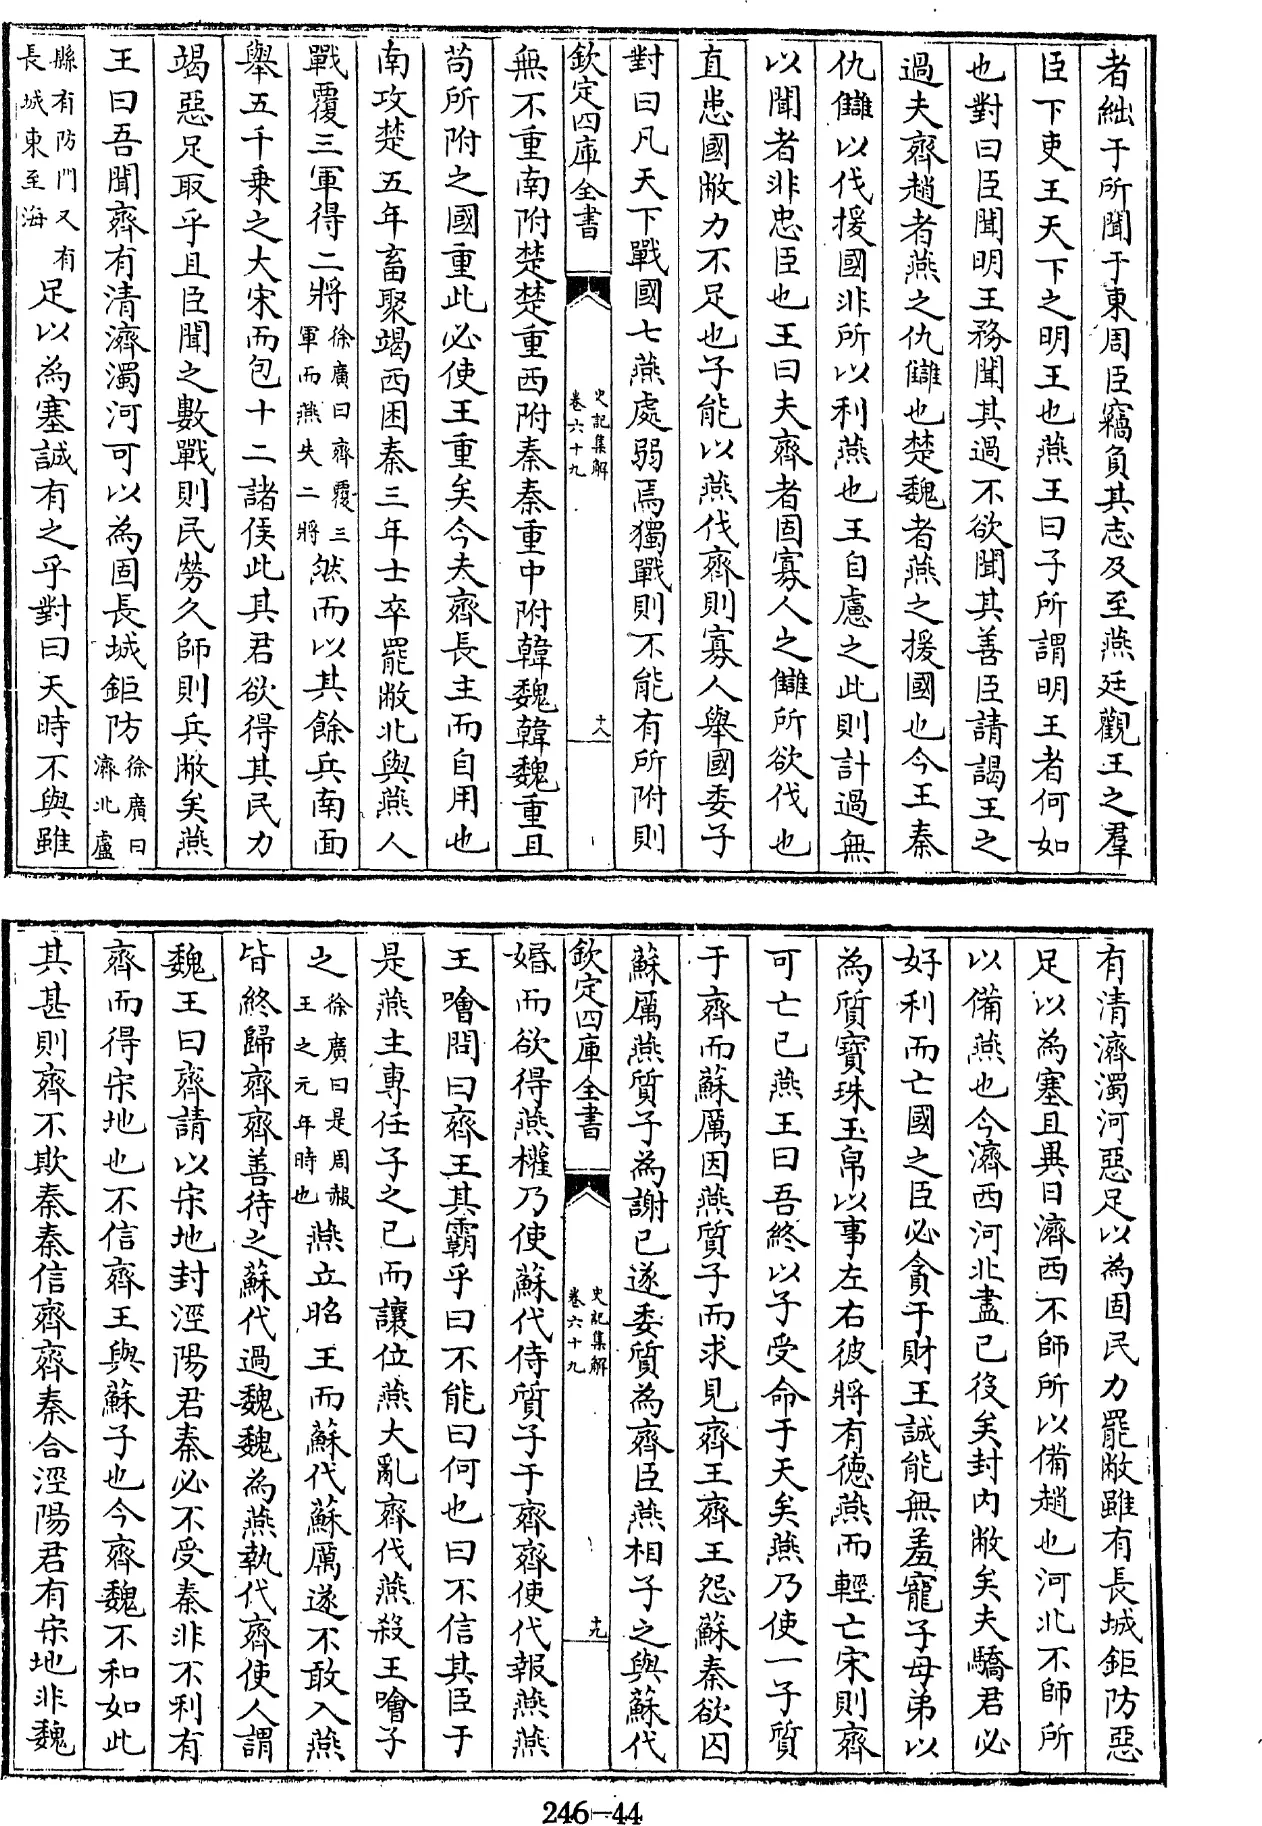 者絀于所聞于東周臣竊負其志及至燕廷觀王之羣
臣下吏王天下之明王也燕王曰子所謂明王者何如
也對曰臣聞明王務聞其過不欲聞其善臣請謁王之
過夫齊趙者燕之仇讎也楚魏者燕之援國也今王奉
仇讎以伐援國非所以利燕也王自慮之此則計過無
以聞者非忠臣也王曰夫齊者固寡人之讎所欲伐也
直患國敝力不足也子能以燕伐齊則寡人舉國委子
對曰凡天下戰國七燕處弱焉獨戰則不能有所附則
欽定四庫全書
史記集解
卷六十九
十八
無不重南附楚楚重西附秦秦重中附韓魏韓魏重且
苟所附之國重此必使王重矣今夫齊長主而自用也
南攻楚五年畜聚竭西困秦三年士卒罷敝北與燕人
戰覆三軍得二將徐廣曰齊覆三軍而燕失二將然而以其餘兵南面
舉五千乗之大宋而包十二諸侯此其君欲得其民力
竭惡足取乎且臣聞之數戰則民勞久師則兵敝矣燕
王曰吾聞齊有清濟濁河可以為固長城鉅防徐廣曰濟北盧
縣有防門又有長城東至海足以為塞誠有之乎對曰天時不與雖
有清濟濁河惡足以為固民力罷敝雖有長城鉅防惡
足以為塞且異日濟西不師所以備趙也河北不師所
以備燕也今濟西河北盡已役矣封内敝矣夫驕君必
好利而亡國之臣必貪于財王誠能無羞寵子母弟以
為質寶珠玉帛以事左右彼將有德燕而輕亡宋則齊
可亡已燕王曰吾終以子受命于天矣燕乃使一子質
于齊而蘇厲因燕質子而求見齊王齊王怨蘇秦欲囚
蘇厲燕質子為謝已遂委質為齊臣燕相子之與蘇代
欽定四庫全書
史記集解
卷六十九
十九
婚而欲得燕權乃使蘇代侍質子于齊齊使代報燕燕
王噲問曰齊王其霸乎曰不能曰何也曰不信其臣于
是燕主專任子之已而讓位燕大亂齊伐燕殺王噲子
之徐廣曰是周赧王之元年時也燕立昭王而蘇代蘇厲遂不敢入燕
皆終歸齊齊善待之蘇代過魏魏為燕執代齊使人謂
魏王曰齊請以宋地封涇陽君秦必不受秦非不利有
齊而得宋地也不信齊王與蘇子也今齊魏不和如此
其甚則齊不欺秦秦信齊齊秦合涇陽君有宋地非魏
246-44